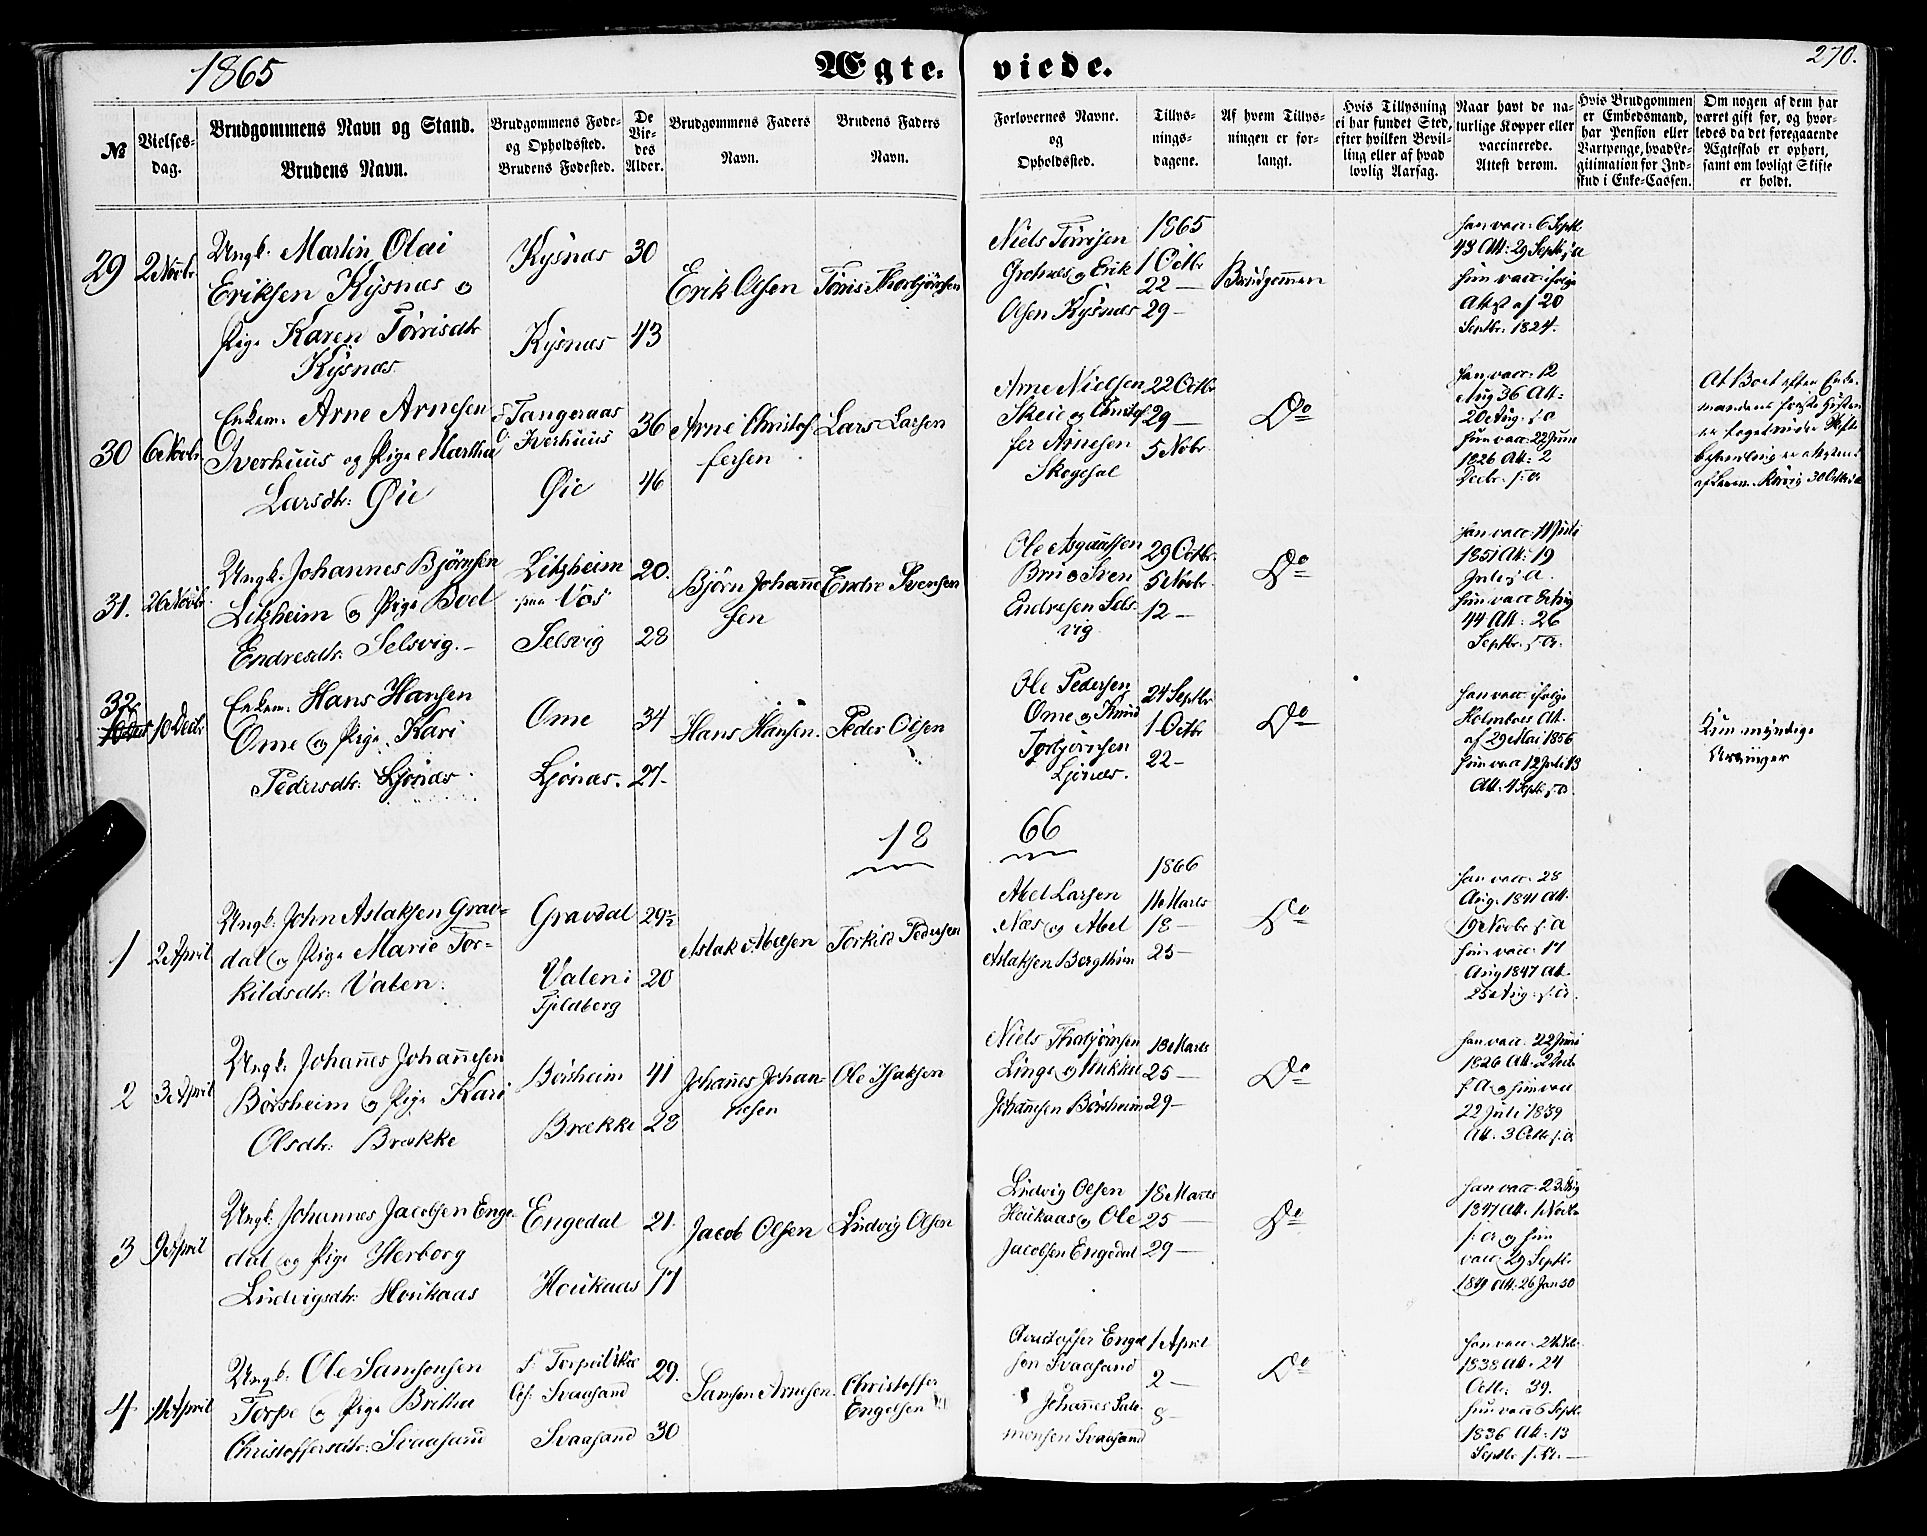 1865
Ægte-
viede.
270.
№
Vielses-
dag.
Brudgommens Navn og Stand.
Brudens Navn.
Brudgommens Føde-
og Opholdssted.
Brudens Fødested.
De
Vie-
des
Alder.
Brudgommens Faders
Navn.
Brudens Faders
Navn.
Forlovernes Navne.
og
Opholdssted.
Tillys-
nings-
dagene.
Af hvem Tillys-
ningen er for-
langt.
Hvis Tillysning
ei har fundet Sted,
efter hvilken Bevil-
ling eller af hvad
lovlig Aarsag.
Naar havt de na-
turlige Kopper eller
vaccinerede.
Attest derom.
Hvis Brudgommen
er Embedsmand,
har Pension eller
Vartpenge, hvad Le-
gitimation for Ind-
skud i Enke-Cassen.
Om nogen af dem har
været gift før, og hvor-
ledes da det foregaaende
Ægteskab er ophørt,
samt om lovligt Skifte
er holdt.
29
2 Novbr
Ungk. Martin Olai
Eriksen Kysnæs og
Pige Karen Tørrisdtr
Kysnæs
Kysnæs
30
Kysnæs
43
Erik Olsen
Tørris Thorbjørnsen
Niels Tørrisen
og Erik
Olsen Kysnæs
1865
1 Octbr
22 —
29 —
Brudgommen
han vacc. 6 Septbr
43 Att: 29 Septbr s. a
hun vacc. ifølge
Attest af 20
Septbr. 1824.
30
6 Novbr.
Enkem: Arne Arnesen
Iverhuus og Pige Martha
Larsdtr: Øie
Tangeraas
Iverhuus
36
Øie
46
Arne Christof-
fersen
Lars Larsen
Arne Nielsen
Skeie og Christof
fer Arnesen
22 Octbr
29 —
5 Novbr
Do
han vacc: 12
Aug 36 Att:
20 Aug. s. a
hun vacc 22 Juni
1826 Att: 2
Decbr. s. a
At Boet efter Enke-
mandens første Hustru
er taget under Skifte
31.
26 Novbr.
Ungk. Johannes Bjørnsen
Litzheim og Pige Boel
Endresdtr. Selsvig.
Litzheim
paa Vos
20.
Selsvig
28
Bjørn Johanne
sen
Endre Svensen
Endresen Sels-
vig
29 Octbr.
5 Novbr.
12 —
Do
1851 Att: 19
Juli s. a.
44 Att: 26
Septbr. s. a.
32
10 Decbr
Enkem: Hans Hansen
Ome og Pige Kari
Pedersdtr. Ljønæs
Ome
34
Ljønæs.
27.
Hans Hansen.
Peder Olsen
Ole Pedersen
Ome og Knud
Torbjørnsen
Ljønæs.
24 Septbr
1 Octbr
22 —
Do
han vacc. ifølge
Holmboes Att.
af 29 Mai 1856
Att. 4 Septbr s. a.
Kun myndige
Arvinger
18
66
1
2 April
Ungk. John Aslaksen Grav-
dal og Pige Marie Tor-
kildsdtr. Valen.
Gravdal
29½
Valen i
Fjeldberg
20
Aslak Abelsen
Torkild Pedersen
Abel Larsen
Næs og Abel
Aslaksen Bergthun
1866
11 Marts
18 —
25 —
Do
han vacc. 28
Aug. 1841 Att.
19 Novbr s. a
hun vacc. 17
Aug 1847 Att.
25 Aug. s. a.
2
3 April
Ungk. Johannes Johannesen
Børsheim og Pige Kari
Olsdtr. Brække
Børsheim
41
Brække
28
Johannes Johan-
nesen
Ole Isaksen
Niels Thorbjørnsen
Linge og
Johannesen Børsheim
18 Marts
25 —
29 —
Do
han vacc. 22 Juni
1826 Att. 2 Decbr
s. a og hun vacc
22 Juli 1839
Att. 3 Octbr s. a
3
9 April
Ungk. Johannes Jacobsen Enge-
dal og Pige Herborg
Ludvigsdtr. Houkaas
Engedal
21.
Houkaas
17
Jacob Olsen
Ludvig Olsen
Ludvig Olsen
Houkaas og Ole
Jacobsen Engedal
18 Marts
25 —
29 —
Do
han vacc. 23 Aug
1847 Att. 1 Novbr
s. a og hun
vacc: 29 Septbr
1849 Att. 26 Jan 50
4
11 April
Ungk. Ole Samsonsen
Torpe og Pige Britha
Christoffersdtr. Svaasand
f. Torpe i Vikør
Op. Svaasand
29.
Svaasand
30
Samson Arnesen.
Christoffer
Engelsen
Christoffer Engel
sen Svaasand
Johannes Salo-
monsen Svaasand
1 April
2 —
8 —
Do
1838 Att. 24
Octbr. 39.
hun vacc 6 Septbr.
1836 Att. 13
Septbr s. a. —